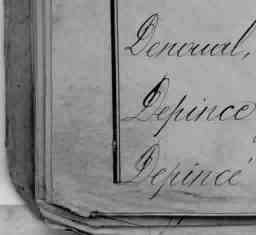 Denoual,
Depince
Depincé